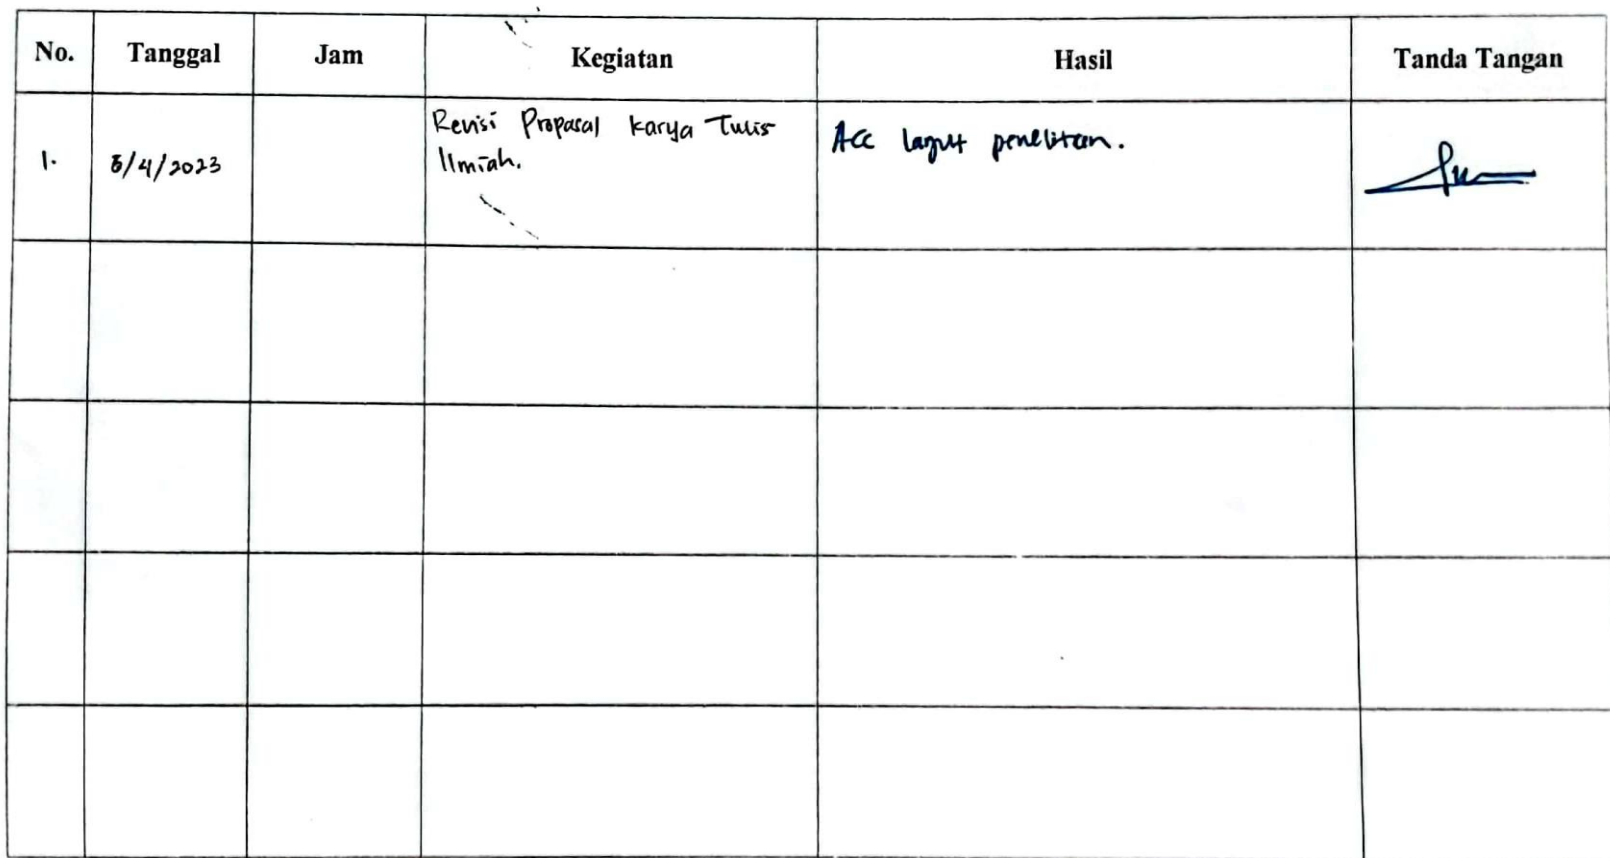 No. Tanggal Jam Kegiatan Hasil Tanda Tangan
1. 5/4/2023 Revisi Proposal Karya Tulis Acc lanjut penelitian.
Ilmiah.